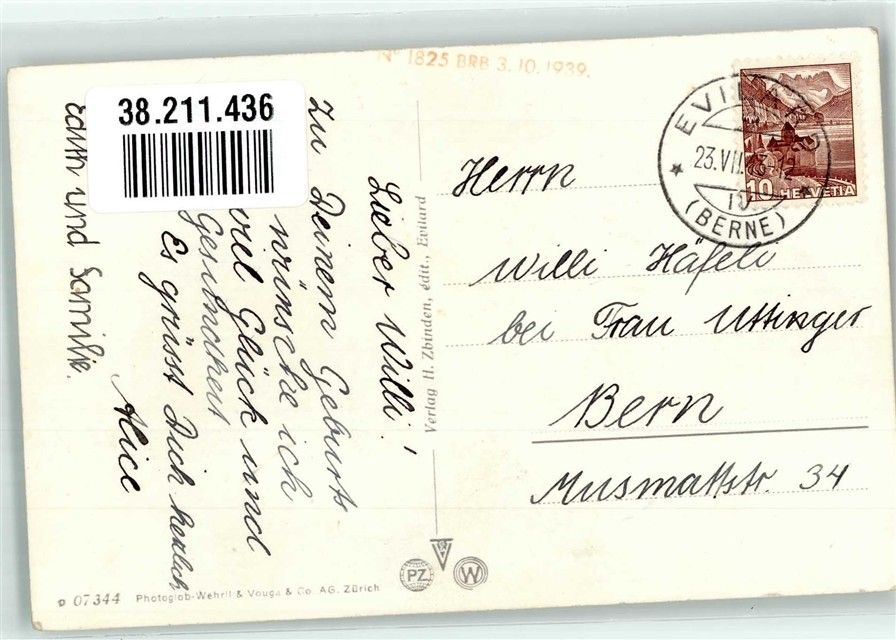 Nº 1825 BRB 3.10.1939.
38.211.436
Lieber Willi!
Zu Deinem Geburts
wünsche ich
viel Glück und
Gesundheit
Es grüsst Dich herzlich
Alice
Edith und Familie.
Verlag H. Zbinden, édit., Evilard
Herrn
Willi Häfeli
bei Frau
Bern
Musmattstr. 34
23.VII.
(BERNE)
10 HELVETIA
PZ
W
07344 Photoglob-Wehrli & Vouga & Co. AG. Zürich